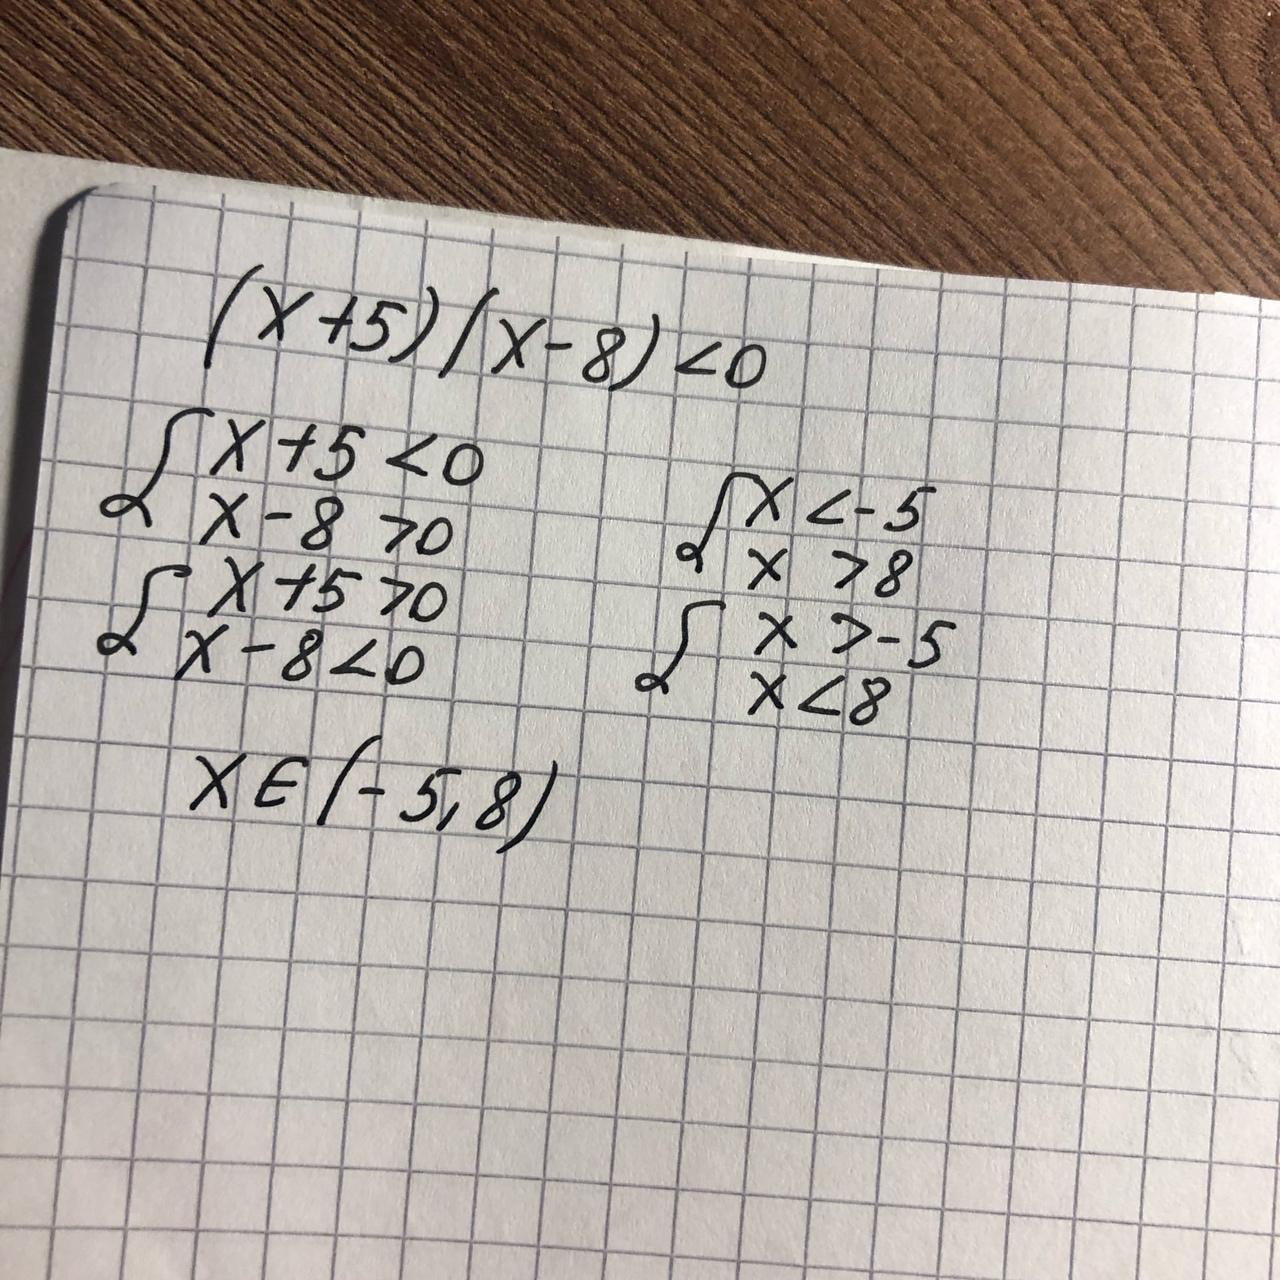 (x+5)(x-8)<0
{x+5<0
x-8>0
{x+5>0
x-8<0
{x<-5
x>8
{x>-5
x<8
x∈(-5,8)